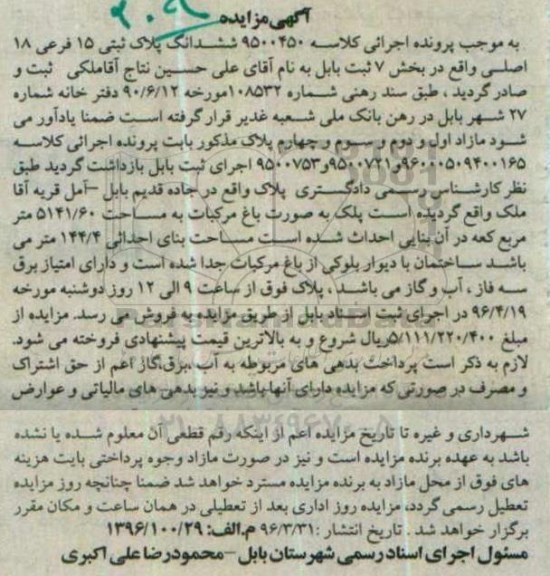 ۲۰۹
آگهی مزایده
به موجب پرونده اجرائی کلاسه ۹۵۰۰۴۵۰ ششدانگ پلاک ثبتی ۱۵ فرعی ۱۸
اصلی واقع در بخش ۷ ثبت بابل به نام آقای علی حسین نتاج آقاملکی ثبت و
صادر گردید ، طبق سند رهنی شماره ۱۰۸۵۳۲مورخه ۹۰/۶/۱۲ دفتر خانه شماره
۲۷ شهر بابل در رهن بانک ملی شعبه غدیر قرار گرفته است ضمنا یادآور می
شود مازاد اول و دوم و سوم و چهارم پلاک مذکور بابت پرونده اجرائی کلاسه
۹۶۰۰۰۵۰۹۴۰۰۱۶۵و۹۵۰۰۷۲۱و۹۵۰۰۷۵۳ اجرای ثبت بابل بازداشت گردید طبق
نظر کارشناس رسمی دادگستری پلاک واقع در جاده قدیم بابل –آمل قریه آقا
ملک واقع گردیده است پلک به صورت باغ مرکبات به مساحت ۵۱۴۱/۶۰ متر
مربع کعه در آن بنایی احداث شده است مساحت بنای احداثی ۱۴۴/۴ متر می
باشد ساختمان با دیوار بلوکی از باغ مرکبات جدا شده است و دارای امتیاز برق
سه فاز ، آب و گاز می باشد ، پلاک فوق از ساعت ۹ الی ۱۲ روز دوشنبه مورخه
۹۶/۴/۱۹ در اجرای ثبت اسناد بابل از طریق مزایده به فروش می رسد. مزایده از
مبلغ ۵/۱۱۱/۲۲۰/۴۰۰ریال شروع و به بالاترین قیمت پیشنهادی فروخته می شود.
لازم به ذکر است پرداخت بدهی های مربوطه به آب ،برق،گاز اعم از حق اشتراک
و مصرف در صورتی که مزایده دارای آنها باشد و نیز بدهی های مالیاتی و عوارض
شهرداری و غیره تا تاریخ مزایده اعم از اینکه رقم قطعی آن معلوم شده یا نشده
باشد به عهده برنده مزایده است و نیز در صورت مازاد وجوه پرداختی بابت هزینه
های فوق از محل مازاد به برنده مزایده مسترد خواهد شد ضمنا چنانچه روز مزایده
تعطیل رسمی گردد، مزایده روز اداری بعد از تعطیلی در همان ساعت و مکان مقرر
برگزار خواهد شد . تاریخ انتشار :۹۶/۳/۳۱ م.الف: ۱۳۹۶/۱۰۰/۲۹
مسئول اجرای اسناد رسمی شهرستان بابل –محمودرضا علی اکبری